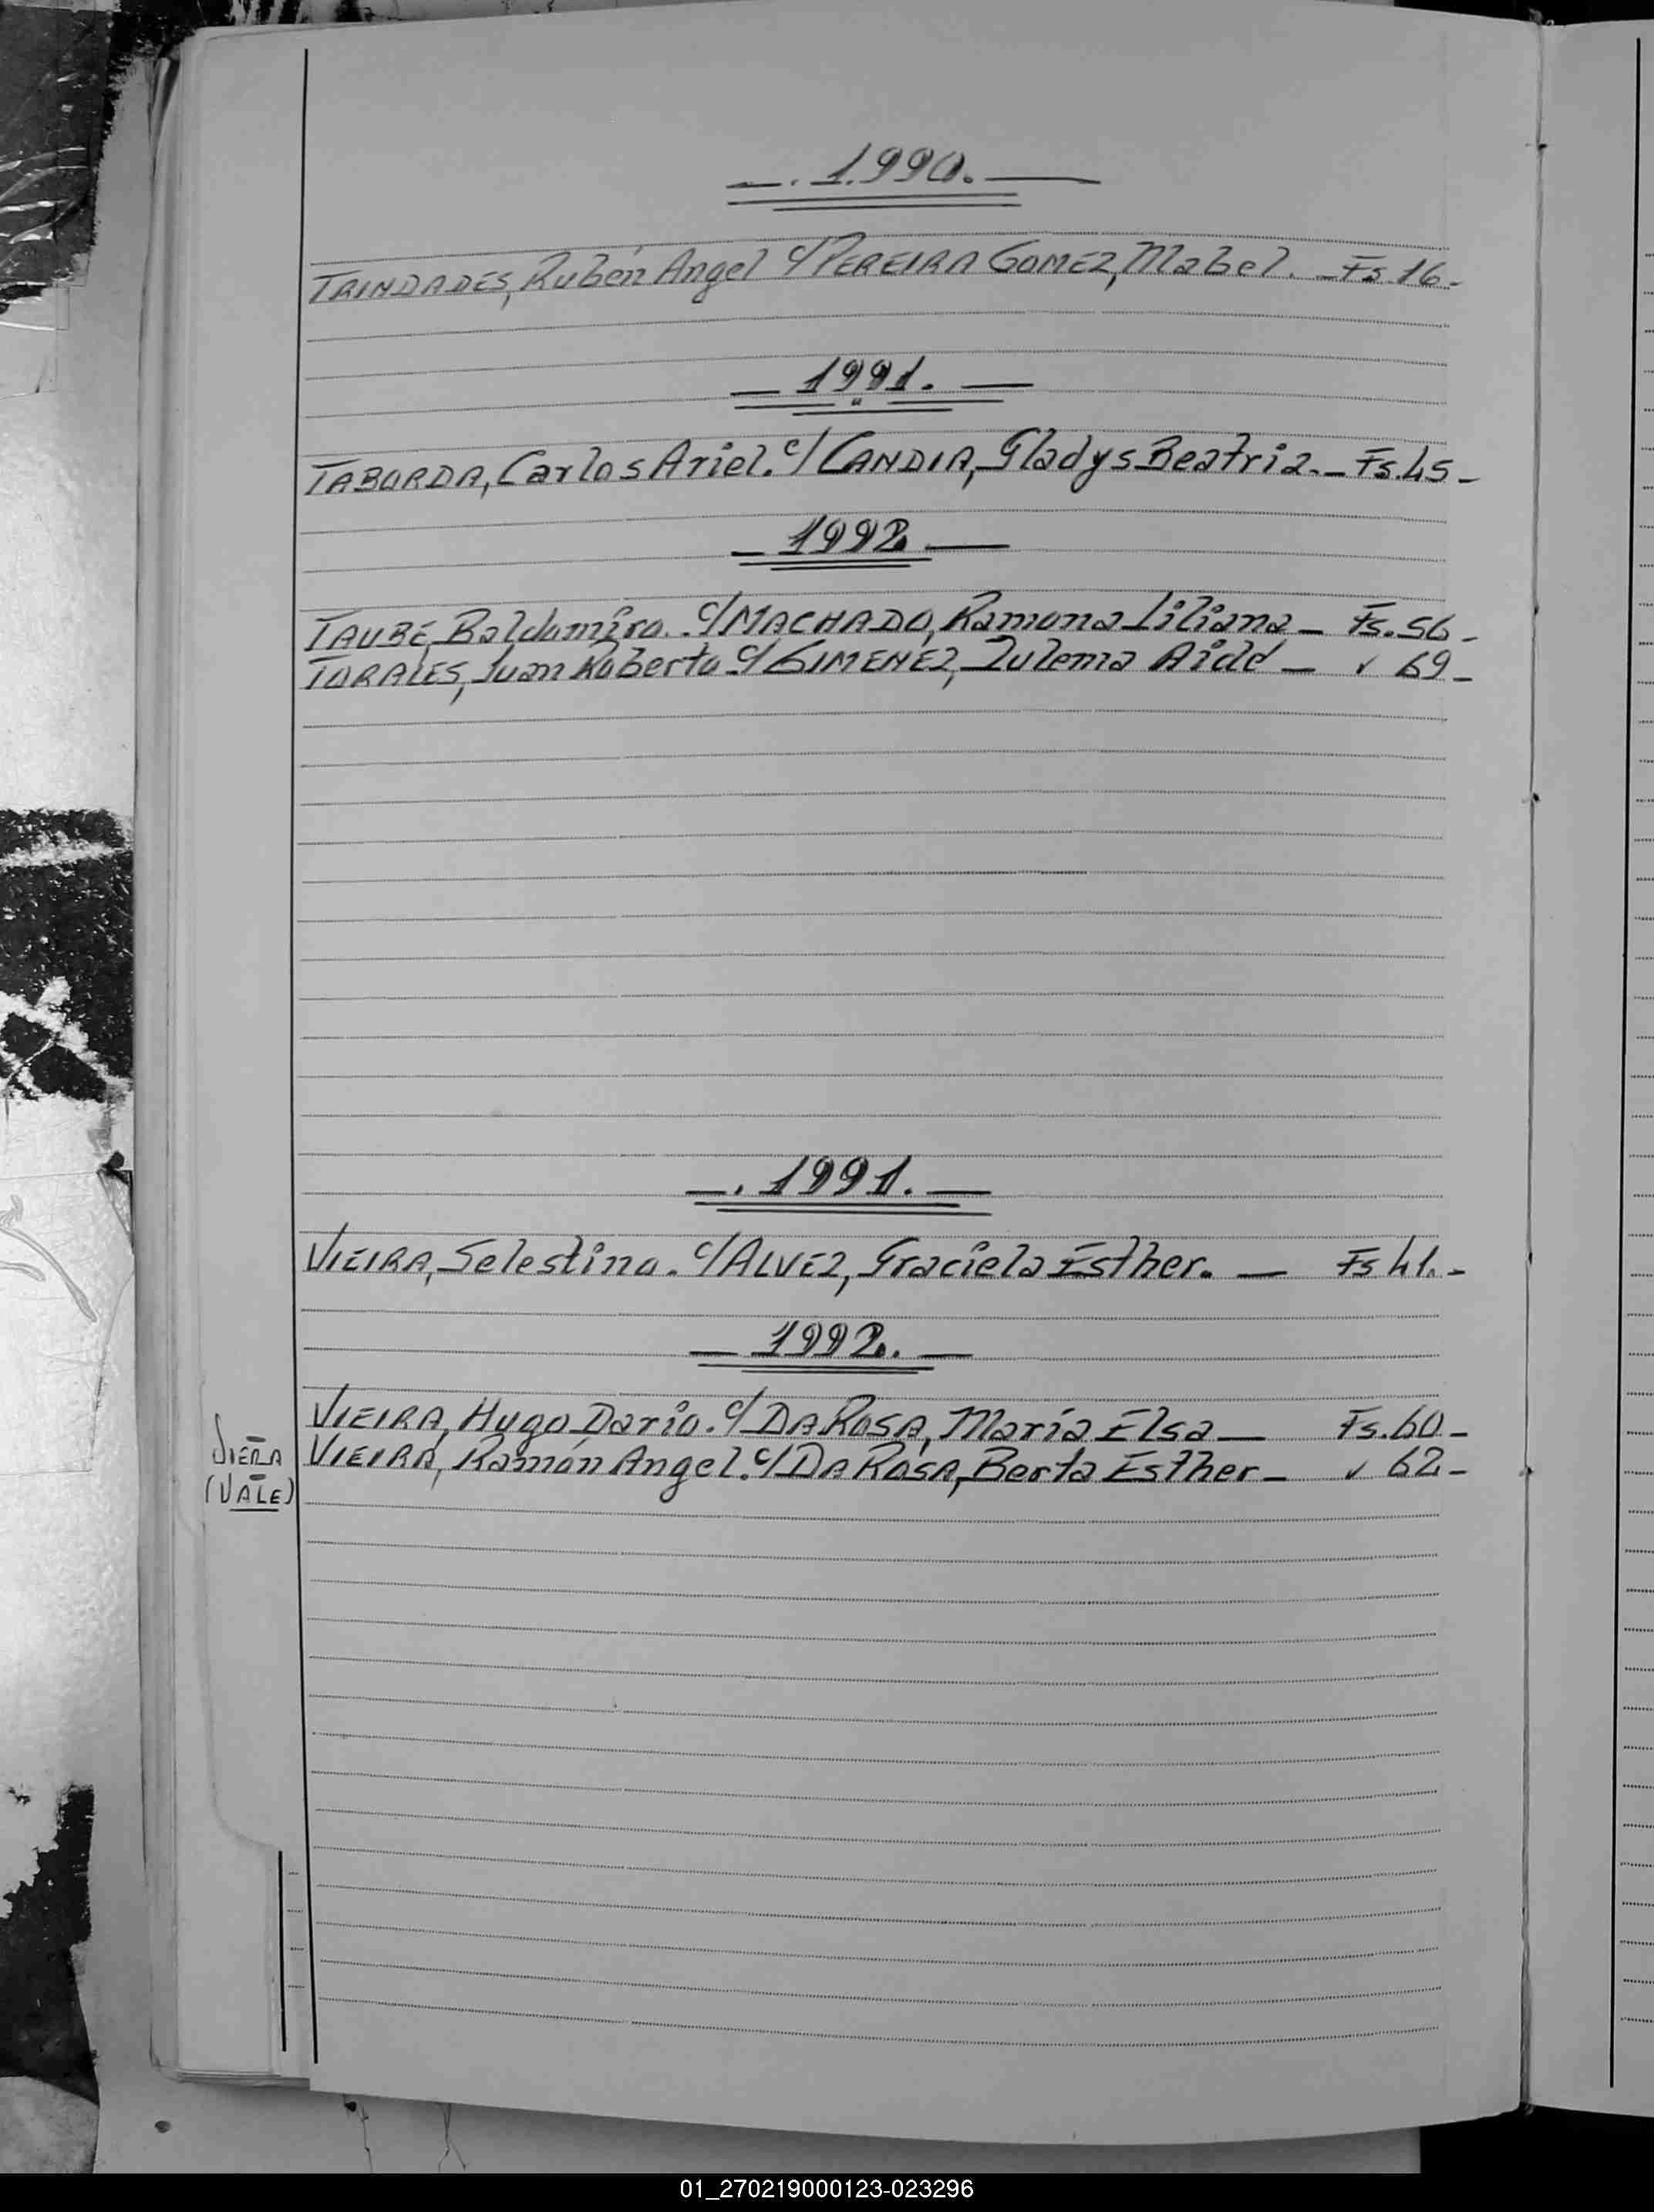 _. 1.990. __
TRINDADES, Rubén Angel c/ PEREIRA GOMEZ, Mabel. _ Fs. 16._
_ 1991. _
TABORDA, Carlos Ariel. c/ CANDIA, Gladys Beatriz. _ Fs. 45 _
_ 1992. _
TAUBÉ, Baldomiro. c/ MACHADO, Ramona Liliana _ Fs. 56 _
TORALES, Juan Roberto c/ GIMENEZ, Zulema Aidé _ v 69 _
_. 1991. _
VIEIRA, Selestino. c/ ALVEZ, Graciela Esther. _ Fs 41. _
_ 1992. _
VIEIRA, Hugo Dario. c/ DA ROSA, María Elsa _ Fs. 60 _
VIEIRA, Ramón Angel. c/ DA ROSA, Berta Esther _ v 62 _
(VALE)
01_270219000123-023296